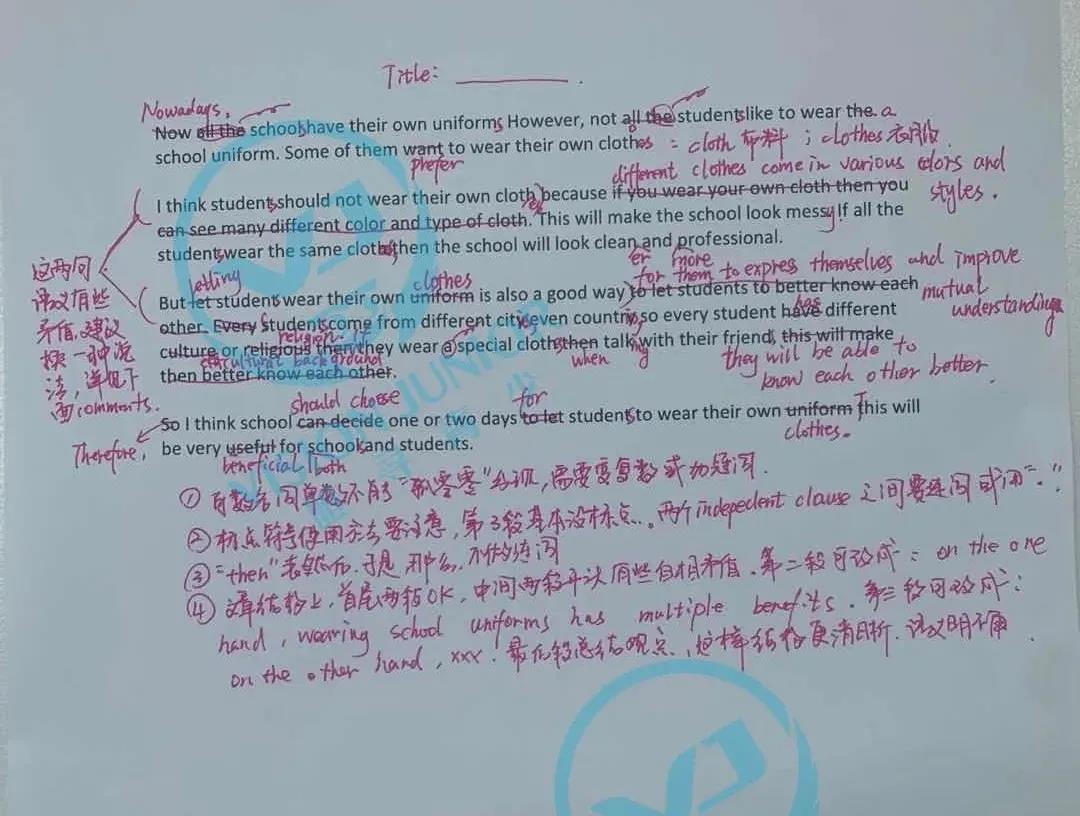 Title: ________ .
Nowadays,
Now all the schools have their own uniforms However, not all the students like to wear the. a
school uniform. Some of them want to wear their own clothes = cloth 布料 ; clothes 衣服
prefer
different clothes come in various colors and
styles.
I think students should not wear their own clothes because if you wear your own cloth then you
can see many different color and type of cloth. This will make the school look messy If all the
students wear the same clothes then the school will look clean and professional.
er more
这两句
语义有些
矛盾,建议
换一种说
法,详见下
面comments.
letting
clothes
for them to express themselves and improve
mutual
understanding
But let students wear their own uniform is also a good way to let students to better know each
other. Every students come from different cities even country, so every student have different
has
religion.
culture or religious then they wear a special clothes then talk with their friend, this will make
cultural background
when
ing
they will be able to
know each other better.
then better know each other.
should choose
for
So I think school can decide one or two days to let students to wear their own uniform This will
Therefore,
clothes.
be very useful for schools and students.
beneficial
both
① 可数名词单数不能"孤零零"出现,需要变复数或加冠词.
② 标点符号使用方法要注意,第3段基本没标点。两个indepedent clause 之间要连词或用"."
③ "then"表然后、于是、那么,不做连词
④ 文章结构上,首尾两段OK,中间两段开头有些自相矛盾.第二段可改成: on the one
hand, wearing school uniforms has multiple benefits. 第三段可改成:
on the other hand, xxx. 最后段总结观点,这样结构更清晰.语义明确